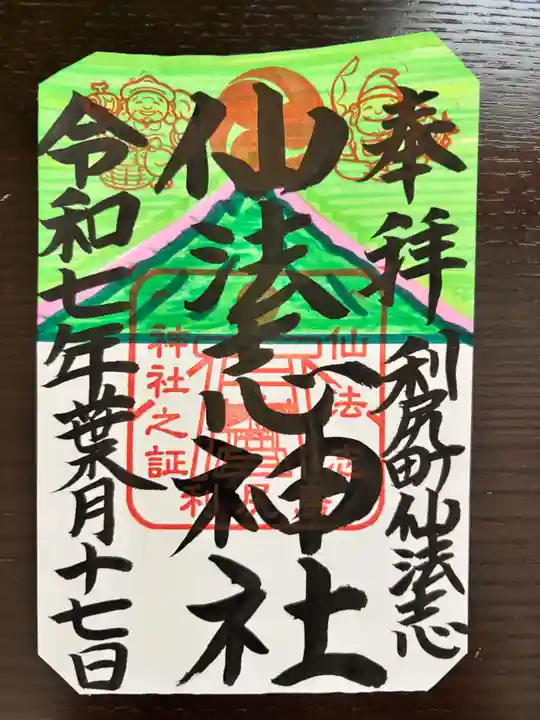 奉拝
利尻町仙法志
仙法志神社
令和七年葉月十七日
仙法
神社之証